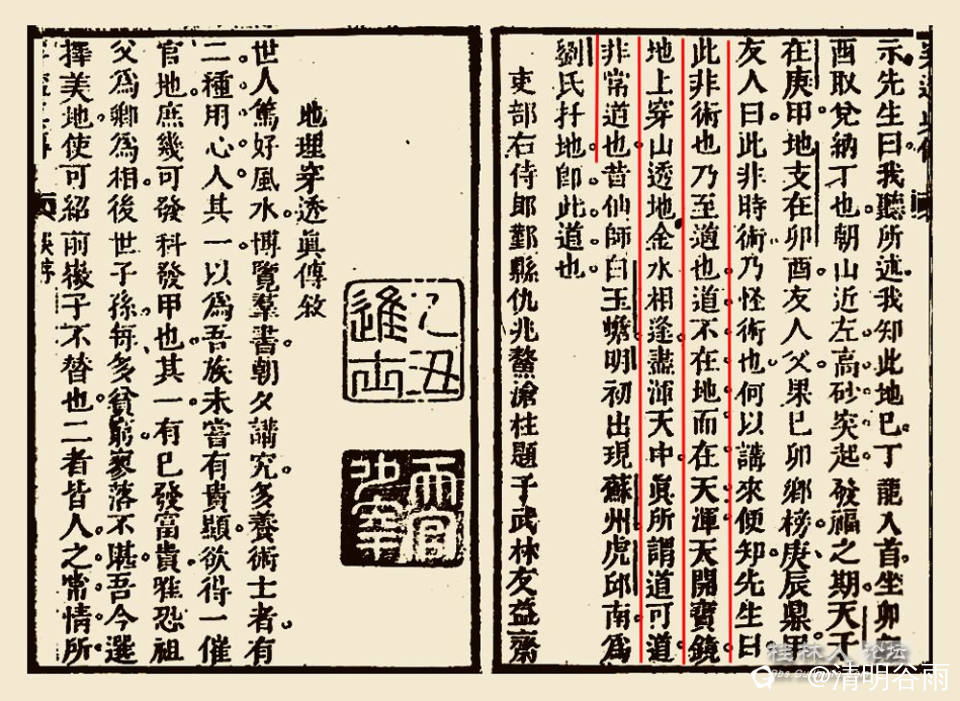 示先生曰我聽所述我知此地巳丁龍入首坐卯
酉取兌納丁也朝山近左高砂突起發福之期天干
在庚甲地支在卯酉友人父果巳卯鄉榜庚辰鼎甲
友人曰此非時術乃怪術也何以講來便知先生曰
此非術也乃至道也道不在地而在天渾天開寶鏡
地上穿山透地金水相逢盡渾天中真所謂道可道
非常道也昔仙師白玉蟾明初出現蘇州虎邱南為
劉氏扦地卽此道也
吏部右侍郎鄞縣仇兆鰲滄柱題于武林友益齋
乙丑進士
天官
地理穿透眞傳敘
世人篤好風水博覽羣書朝夕講究多養術士者有
二種用心人其一以為吾族未嘗有貴顯欲得一催
官地庶幾可發科發甲也其一有巳發富貴雅恐祖
父為卿為相後世子孫每多貧窮寥落不堪吾今選
擇美地使可紹前徽子不替也二者皆人之常情所
桂林人论坛
@清明谷雨